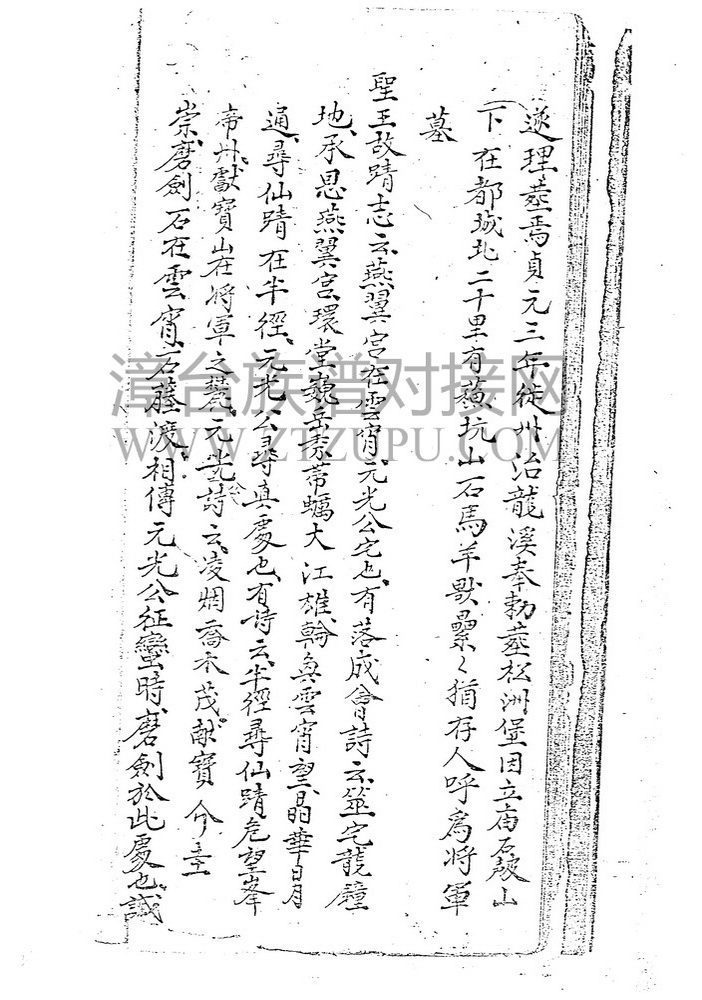 遂理塟焉貞元三年徙州治龍溪奉勅塟松洲堡因立庙石皷山
下在都城北二十里有蔿坑山石馬羊獸纍〻猶存人呼爲将軍
墓
聖王故蹟志云燕翼宫在雲宵元光公宅也有落成會詩云筮宅龍鐘
地承恩燕翼宫環堂巍岳秀帯蠣大江雄輪奐雲宵望晶華日月
通尋仙蹟在半徑元光公尋真處也有诗云半徑尋仙蹟危望峯
帝州獻寶山在将軍之麓元光公詩云凌烟喬木茂献寳介圭
崇磨劍石在雲宵石藤渡相傳元光公征蠻時磨劍於此處也誠
漳台族谱对接网
WWW.ZTZUPU.COM